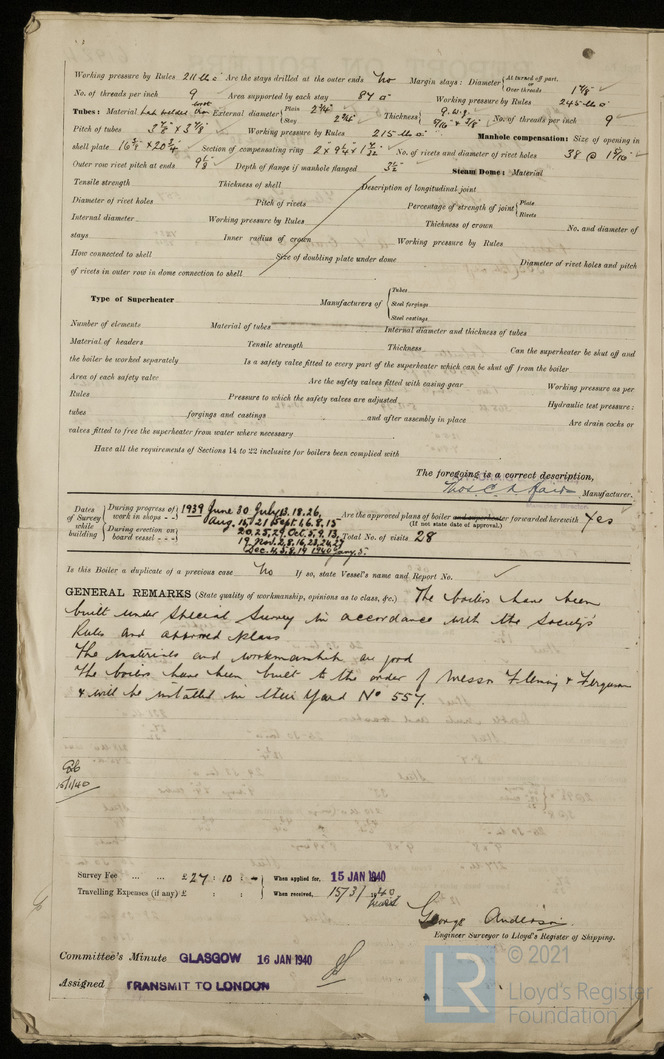 Working pressure by Rules 211 lbs □" Are the stays drilled at the outer ends No Margin stays: Diameter { At turned off part. or Over threads 1 7/8"
No. of threads per inch 9 Area supported by each stay 87 □" Working pressure by Rules 245 lbs □"
Tubes: Material Lap welded iron External diameter { Plain 2 3/4" Stay 2 3/4" Thickness { 9 w.g. 5/16" & 3/8" No. of threads per inch 9
Pitch of tubes 3 7/8" x 3 7/8" Working pressure by Rules 215 lbs □" Manhole compensation: Size of opening in
shell plate 16 5/8" x 20 3/4" Section of compensating ring No. of rivets and diameter of rivet holes 38 @ 1 5/16"
Outer row rivet pitch at ends Depth of flange if manhole flanged 3 1/2" Steam Dome: Material
Tensile strength Thickness of shell Description of longitudinal joint
Diameter of rivet holes Pitch of rivets Percentage of strength of joint { Plate Rivets
Internal diameter Working pressure by Rules Thickness of crown No. and diameter of
stays Inner radius of crown Working pressure by Rules
How connected to shell Size of doubling plate under dome Diameter of rivet holes and pitch
of rivets in outer row in dome connection to shell
Type of Superheater Manufacturers of { Tubes Steel forgings Steel castings
Number of elements Material of tubes Internal diameter and thickness of tubes
Material of headers Tensile strength Thickness Can the superheater be shut off and
the boiler be worked separately Is a safety valve fitted to every part of the superheater which can be shut off from the boiler
Area of each safety valve Are the safety valves fitted with easing gear Working pressure as per
Rules Pressure to which the safety valves are adjusted Hydraulic test pressure:
tubes forgings and castings and after assembly in place Are drain cocks or
valves fitted to free the superheater from water where necessary
Have all the requirements of Sections 14 to 22 inclusive for boilers been complied with
The foregoing is a correct description,
Manufacturer.
Dates of Survey while building { During progress of work in shops - - } 1939 June 30 July 13.18.26, Aug. 15/21 Sept 1.6.8.15
{ During erection on board vessel - - - } 20.25.29. Oct. 5.9.13, 19 Nov. 2.8.16.23.24.29 Dec. 4.5.8.14 1940 Jany. 5.
Are the approved plans of boiler and superheater forwarded herewith Yes
(If not state date of approval.)
Total No. of visits 28
Is this Boiler a duplicate of a previous case No If so, state Vessel's name and Report No.
GENERAL REMARKS (State quality of workmanship, opinions as to class, &c.) The boilers have been
built under Special Survey in accordance with the Society's
Rules and approved plans
The materials and workmanship are good
The boilers have been built to the order of Messrs Fleming & Ferguson
& will be installed in their Yard No 557.
15/1/40
Survey Fee ... ... £ 27 : 10 : - When applied for, 15 JAN 1940
Travelling Expenses (if any) £ : : When received, 15/3/ 1940
George Anderson
Engineer Surveyor to Lloyd's Register of Shipping.
Committee's Minute GLASGOW 16 JAN 1940
Assigned TRANSMIT TO LONDON
LR © 2021
Lloyd's Register
Foundation